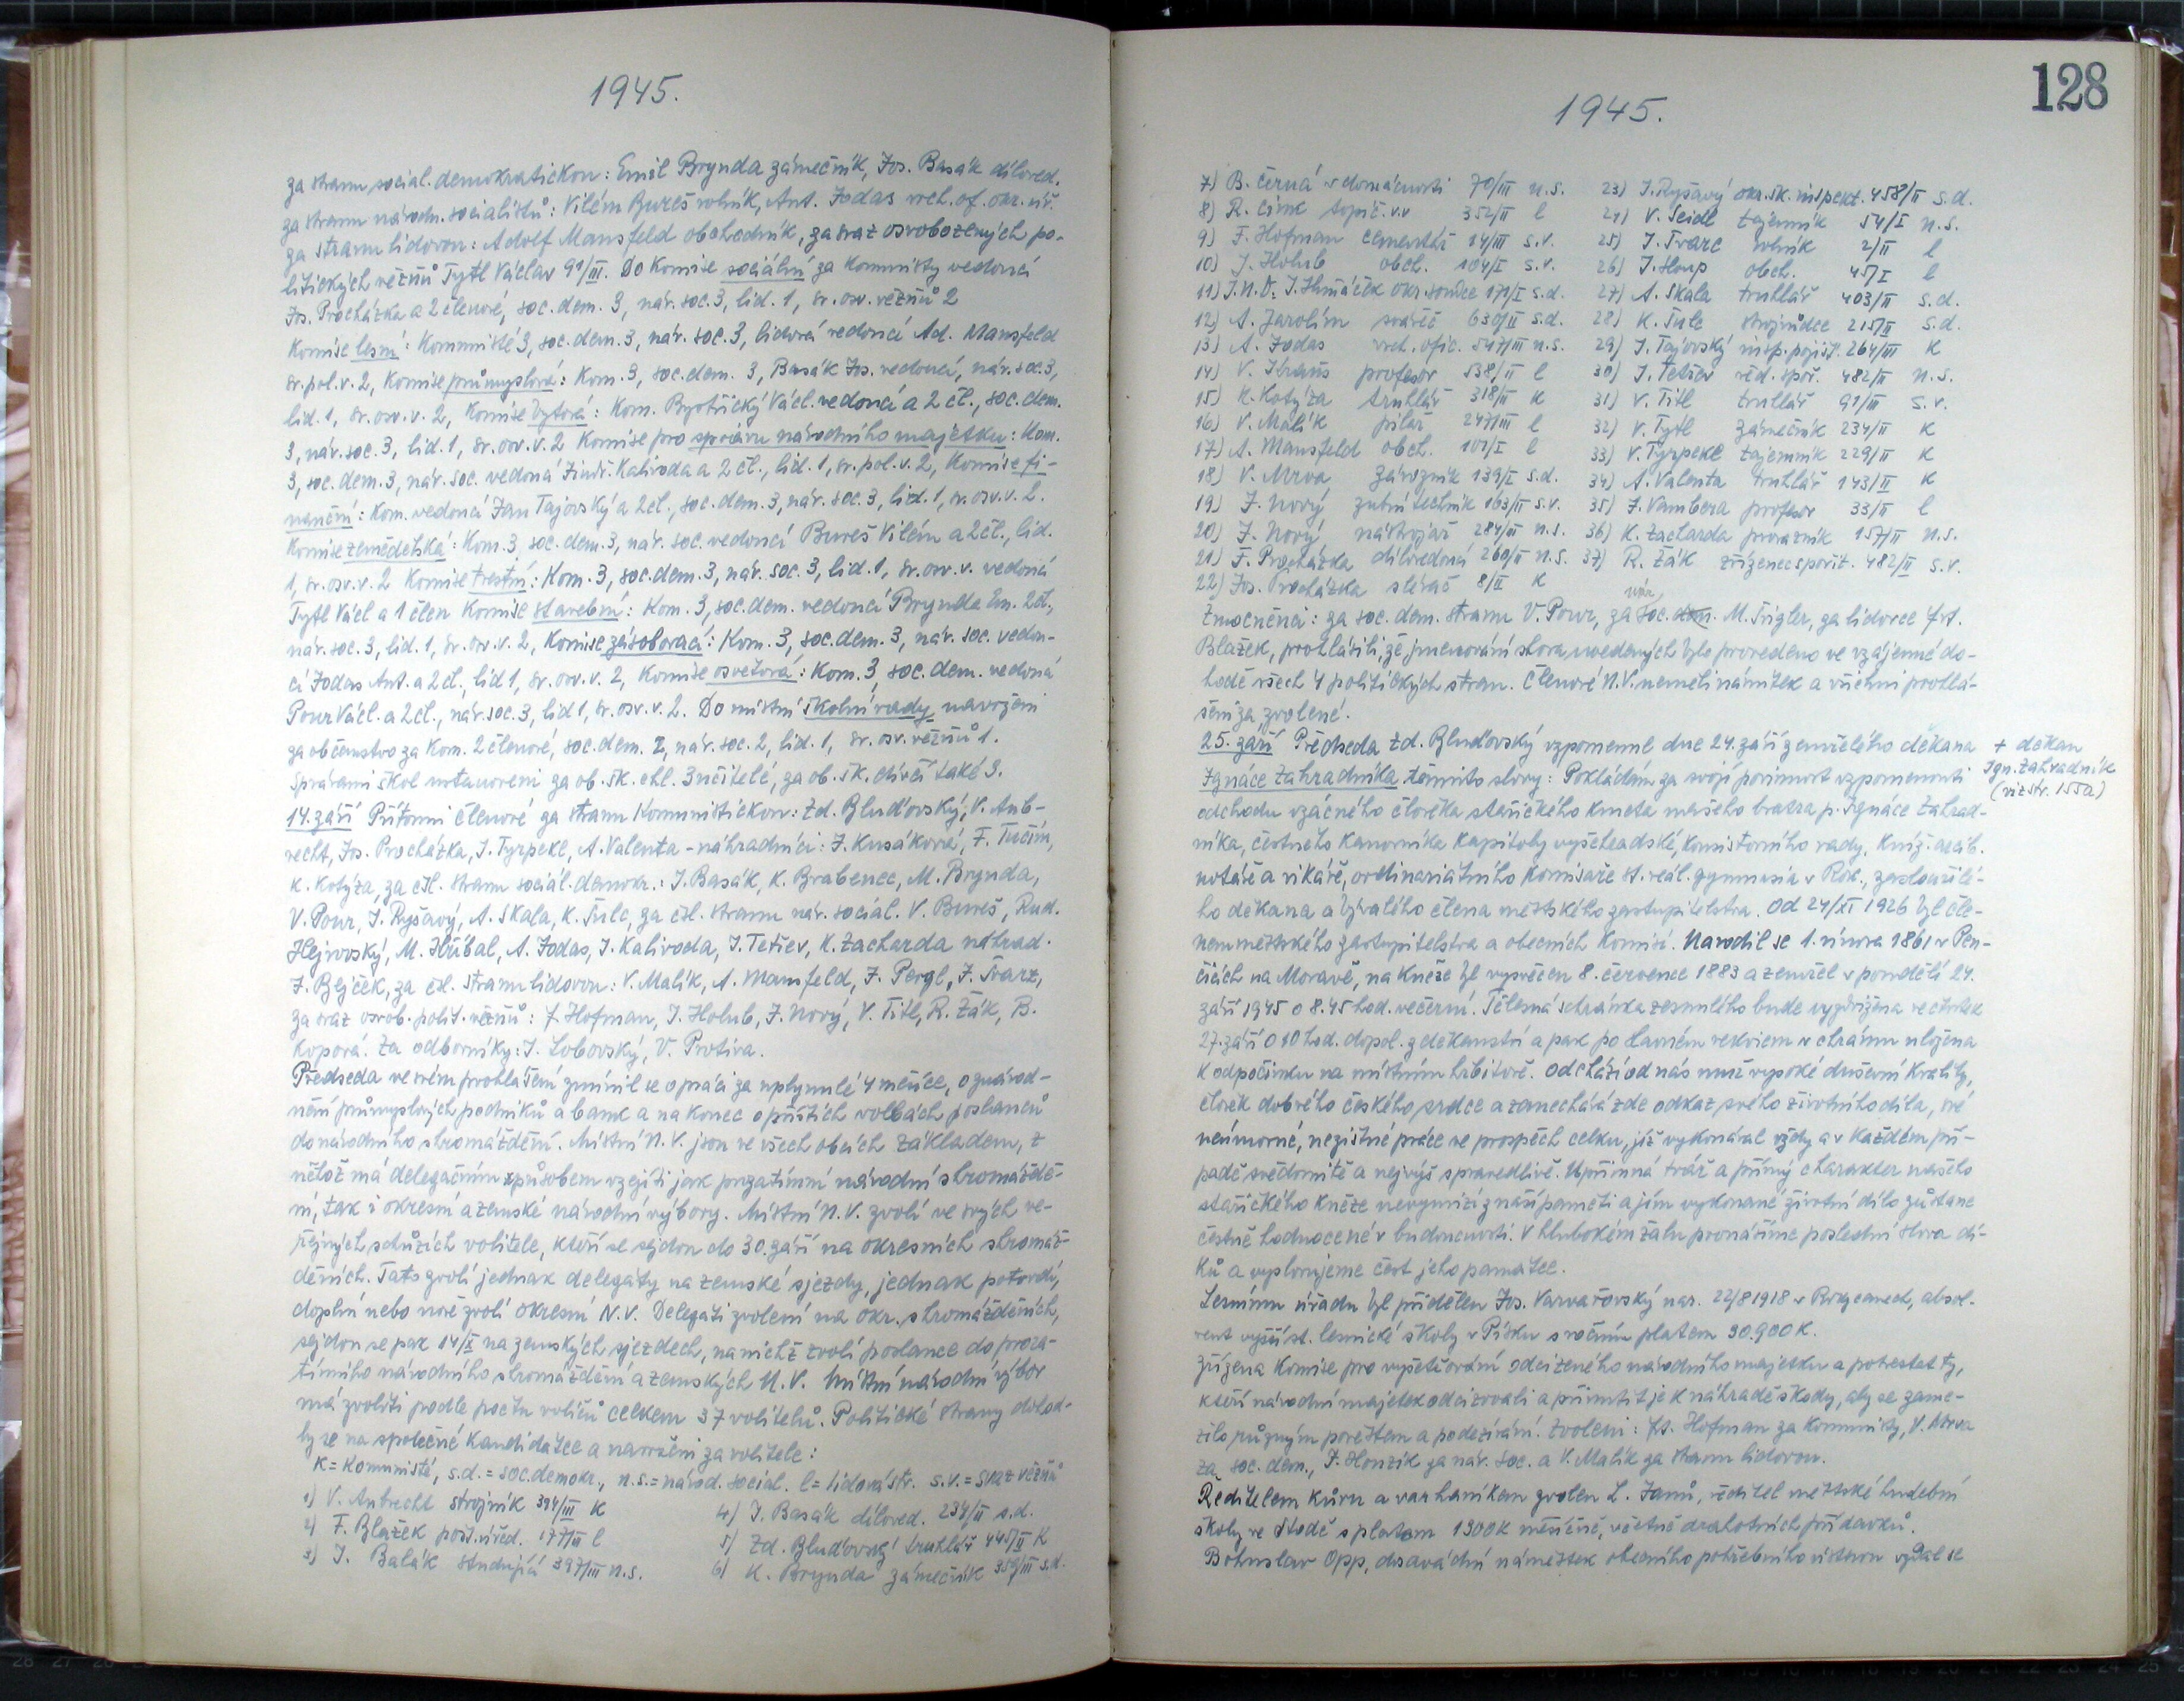 1945.
za stranu social. demokratickou: Emil Brynda zámečník, Jos. Basák díloved.
za stranu národn. socialistů: Vilém Bureš rolník, Ant. Jodas vrch. of. okr. úř.
za stranu lidovou: Adolf Mansfeld obchodník, za svaz osvobozených po-
litických vězňů Tytl Václav 91/III. Do komise sociální za komunisty vedoucí
Jos. Procházka a 2 členové, soc. dem. 3, nár. soc. 3, lid. 1, sv. osv. vězňů 2
Komise lesní: Komunisté 3, soc. dem. 3, nár. soc. 3, lidová vedoucí Ad. Mansfeld
sv. pol. v. 2, Komise průmyslová: Kom. 3, soc. dem. 3, Basák Jos. vedoucí, nár. soc. 3,
lid. 1, sv. osv. v. 2, Komise bytová: Kom. Bystřický Václ. vedoucí a 2 čl., soc. dem.
3, nár. soc. 3, lid. 1, sv. osv. v. 2 Komise pro správu národního majetku: Kom.
3, soc. dem. 3, nár. soc. vedoucí Jindř. Kalivoda a 2 čl., lid. 1, sv. pol. v. 2, Komise fi-
nanční: Kom. vedoucí Jan Tajovský a 2 čl., soc. dem. 3, nár. soc. 3, lid. 1, sv. osv. v. 2.
Komise zemědělská: Kom. 3, soc. dem. 3, nár. soc. vedoucí Bureš Vilém a 2 čl., lid.
1, sv. osv. v. 2 Komise trestní: Kom. 3, soc. dem. 3, nár. soc. 3, lid. 1, sv. osv. v. vedoucí
Tytl Václ a 1 člen Komise stavební: Kom. 3, soc. dem. vedoucí Brynda Em. 2 čl.,
nár. soc. 3, lid. 1, sv. osv. v. 2, Komise zásobovací: Kom. 3, soc. dem. 3, nár. soc. vedou-
cí Jodas Ant. a 2 čl., lid 1, sv. osv. v. 2, Komise osvětová: Kom. 3, soc. dem. vedoucí
Pour Václ. a 2 čl., nár. soc. 3, lid 1, sv. osv. v. 2. Do místní školní rady navrženi
za občanstvo za Kom. 2 členové, soc. dem. 2, nár. soc. 2, lid. 1, sv. osv. vězňů 1.
Správami škol ustanoveni za ob. šk. chl. 3 učitelé, za ob. šk. dívčí také 3.
14. září Přítomni členové za stranu Komunistickou: Zd. Bluďovský, V. Aub-
recht, Jos. Procházka, J. Tyrpekl, A. Valenta - náhradníci: J. Kusáková, F. Tučín,
K. Kotýza, za čsl. stranu sociál. demokr.: J. Basák, K. Brabenec, M. Brynda,
V. Pour, J. Ryšavý, A. Skala, K. Šulc, za čsl. stranu nár. sociál. V. Bureš, Rud.
Hejrovský, M. Hříbal, A. Jodas, J. Kalivoda, J. Tetřev, K. Zacharda náhrad.
J. Bejček, za čsl. stranu lidovou: V. Malík, A. Mansfeld, J. Pergl, J. Švarz,
za svaz osvob. polit. vězňů: f. Hofman, J. Holub, J. Nový, V. Titl, R. Žák, B.
Koporá. Za odborníky: J. Lobovský, V. Protiva.
Předseda ve svém prohlášení zmínil se o práci za uplynulé 4 měsíce, o znárod-
nění průmyslových podniků a bank a na konec o příštích volbách poslanců
do národního shromáždění. Místní N. V. jsou ve všech obcích základem, z
něhož má delegačním způsobem vzejíti jak prozatímní národní shromáždě-
ní, tak i okresní a zemské národní výbory. Místní N. V. zvolí ve svých ve-
řejných schůzích volitele, kteří se sejdou do 30. září na okresních shromáž-
děních. Tato zvolí jednak delegáty na zemské sjezdy, jednak potvrdí,
doplní nebo nově zvolí okresní N. V. Delegáti zvolení na okr. shromážděních,
sejdou se pak 14/X na zemských sjezdech, na nichž zvolí poslance do proza-
tímního národního shromáždění a zemských N. V. Místní národní výbor
má zvoliti podle počtu voličů celkem 37 volitelů. Politické strany dohod-
ly se na společné kandidátce a navrženi za volitele:
K = Komunisté, s.d. = soc. demokr., n.s. = národ. social. l = lidová str. s.v. = svaz vězňů
1) V. Aubrecht strojník 394/III K
2) F. Blažek pošt. úřed. 177/II l
3) J. Balák studující 397/III n.s.
4) J. Basák díloved. 234/II s.d.
5) Zd. Bluďovský truhlář 445/II K
6) K. Brynda zámečník 359/III s.d.
128
1945.
7) B. Černá v domácnosti 70/III n.s.
8) R. Cink topič. v.v 352/II l
9) F. Hofman cementář 14/III s.v.
10) J. Holub obch. 104/I s.v.
11) J.U.D. J. Hrnáček okr. soudce 171/I s.d.
12) A. Jarolím svářeč 630/II s.d.
13) A. Jodas vrch. ofic. 517/III n.s.
14) V. Jbraus profesor 538/II l
15) K. Kotýza truhlář 318/II K
16) V. Malík pilař 247/III l
17) A. Mansfeld obch. 107/I l
18) V. Mrva závozník 139/I s.d.
19) J. Nový zubní technik 163/II s.v.
20) J. Nový nástrojař 284/II n.s.
21) F. Procházka dílovedoucí 260/II n.s.
22) Jos. Procházka slévač 8/II K
23) J. Ryšavý okr. šk. inspekt. 458/II s.d.
24) V. Seidl tajemník 54/I n.s.
25) J. Švarc rolník 2/II l
26) J. Šloup obch. 45/I l
27) A. Skála truhlář 403/II s.d.
28) K. Šulc strojvůdce 215/II s.d.
29) J. Tajovský insp. pojišť. 264/III K
30) J. Tetřev řed. spoř. 482/II n.s.
31) V. Titl truhlář 91/III s.v.
32) V. Tytl zámečník 234/II K
33) V. Tyrpekl tajemník 229/II K
34) A. Valenta truhlář 143/II K
35) J. Vambera profesor 33/II l
36) K. Zacharda provazník 157/II n.s.
37) R. Žák zřízenec spořit. 482/II s.v.
Zmocněnci: za soc. dem. stranu V. Pour, za nár. soc. dem. M. Šrigler, za lidovce frt.
Blažek, prohlásili, že jmenování shora uvedených bylo provedeno ve vzájemné do-
hodě všech 4 politických stran. Členové N. V. neměli námitek a všichni prohlá-
šeni za zvolené.
25. září Předseda Zd. Bluďovský vzpomenul dne 24. září zemřelého děkana
Ignáce Zahradníka těmito slovy: Pokládám za svojí povinnost vzpomenouti
odchodu vzácného člověka stařičkého kmeta našeho bratra p. Ignáce Zahrad-
níka, čestného kanovníka kapitoly vyšehradské, konsistorního rady, kníž. arcib.
notáře a vikáře, ordinariátního komisaře st. reál. gymnasia v Rok., zasloužilé-
ho děkana a bývalého člena městského zastupitelstva. Od 24/XI 1926 byl čle-
nem městského zastupitelstva a obecních komisí. Narodil se 1. února 1861 v Pen-
čicích na Moravě, na kněze byl vysvěcen 8. července 1883 a zemřel v pondělí 24.
září 1945 o 8.45 hod. večerní. Tělesná schránka zesnulého bude vyzdvižena ve čtvrtek
27. září o 10 hod. dopol. z děkanství a pak po slavném rekviem v chrámu uložena
k odpočinku na místním hřbitově. Odchází od nás muž vysoké duševní kvality,
člověk dobrého českého srdce a zanechává zde odkaz svého životního díla, své
neúmorné, nezištné práce ve prospěch celku, jíž vykonával vždy a v každém pří-
padě svědomitě a nejvýš spravedlivě. Upřímná tvář a přímý charakter našeho
stařičkého kněze nevymizí z naší paměti a jím vykonané životní dílo zůstane
čestně hodnocené v budoucnosti. V hlubokém žalu pronášíme poslední slova dí-
ků a vyslovujeme čest jeho památce.
+ děkan
Ign. Zahradník
(viz str. 155a)
Lesnímu úřadu byl přidělen Jos. Varvařovský nar. 22/8 1918 v Rokycanech, absol-
vent vyšší st. lesnické školy v Písku s ročním platem 30.900 K.
Zřízena komise pro vyšetřování odcizeného národního majetku a potrestat ty,
kteří národní majetek odcizovali a přinutit je k náhradě škody, aby se zame-
zilo různým pověstem a podezírání. Zvoleni: frt. Hofman za komunisty, V. Mrva
za soc. dem., J. Honzík za nár. soc. a V. Malík za stranu lidovou.
Ředitelem kůru a varhaníkem zvolen L. Janů, ředitel městské hudební
školy ve Stodě s platem 1300 K měsíčně, včetně drahotních přídavků.
Bohuslav Opp, dosavadní náměstek obecního pohřebního ústavu vzdal se